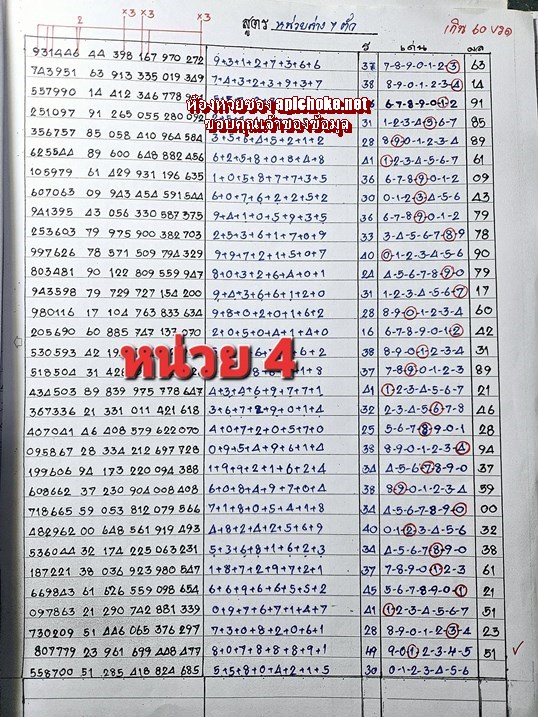 x3 x3 x3
2
สูตร หน่วยล่าง 7 ตัว
เกิน 60 งวด
เด่น ผล
ห้องหวยซอง aplchoke.net
ขอบคุณเจ้าของข้อมูล
หน่วย 4
931446 44 398 167 970 272 9+3+1+2+7+3+6+6 37 7-8-9-0-1-2-3 63
743951 63 913 335 019 349 7+4+3+2+3+9+3+7 38 8-9-0-1-2-3-4 14
557990 14 412 346 778 6-7-8-9-0-1-2 91
251097 91 265 055 280 092 31 1-2-3-4-5-6-7 85
356757 85 058 410 964 584 3+5+6+4+5+2+1+2 28 8-9-0-1-2-3-4 89
625544 89 600 648 882 456 6+2+5+8+0+8+4+8 41 1-2-3-4-5-6-7 61
105979 61 429 931 196 635 1+0+5+8+7+7+3+5 36 6-7-8-9-0-1-2 09
607063 09 943 454 591 544 6+0+7+6+2+2+5+2 30 0-1-2-3-4-5-6 43
941395 43 056 330 587 375 9+4+1+0+5+9+3+5 36 6-7-8-9-0-1-2 79
253603 79 975 900 382 703 2+5+3+6+1+7+0+9 33 3-4-5-6-7-8-9 78
997626 78 571 509 794 329 9+9+7+2+1+5+0+7 40 0-1-2-3-4-5-6 90
803481 90 122 809 559 947 8+0+3+2+6+4+0+1 24 4-5-6-7-8-9-0 79
943598 79 729 727 154 200 9+4+3+6+6+1+2+0 31 1-2-3-4-5-6-7 17
980116 17 104 763 833 634 9+8+0+2+0+1+6+2 28 8-9-0-1-2-3-4 60
205690 60 885 747 137 070 2+0+5+0+4+1+4+0 16 6-7-8-9-0-1-2 42
530593 42 38 8-9-0-1-2-3-4 31
518504 31 37 7-8-9-0-1-2-3 89
434503 89 839 975 778 647 4+3+4+6+9+7+7+1 41 1-2-3-4-5-6-7 21
367336 21 331 011 421 618 3+6+7+2+9+0+1+4 32 2-3-4-5-6-7-8 46
407041 46 408 579 622 070 4+0+7+2+0+5+7+0 25 5-6-7-8-9-0-1 28
095867 28 334 212 697 728 0+9+5+4+9+6+1+4 38 8-9-0-1-2-3-4 94
199606 94 173 220 094 388 1+9+9+2+1+6+2+4 34 4-5-6-7-8-9-0 37
608662 37 230 904 008 408 6+0+8+4+9+7+0+4 38 8-9-0-1-2-3-4 59
718665 59 053 812 079 566 7+1+8+0+5+4+1+8 34 4-5-6-7-8-9-0 00
482962 00 648 561 919 493 4+8+2+4+12+5+6+9 40 0-1-2-3-4-5-6 32
536044 32 174 225 063 231 5+3+6+8+1+6+2+3 34 4-5-6-7-8-9-0 38
187221 38 036 923 980 547 1+8+7+2+9+7+2+1 37 7-8-9-0-1-2-3 61
669843 61 626 559 098 654 6+6+9+6+6+5+5+2 45 5-6-7-8-9-0-1 21
097863 21 290 742 881 339 0+9+7+6+7+1+4+7 41 1-2-3-4-5-6-7 51
730209 51 446 065 376 297 7+3+0+8+2+0+6+1 28 8-9-0-1-2-3-4 23
807779 23 961 699 448 477 8+0+7+8+8+8+9+1 49 9-0-1-2-3-4-5 51 ✓
558700 51 285 418 824 685 5+5+8+0+4+2+1+5 30 0-1-2-3-4-5-6